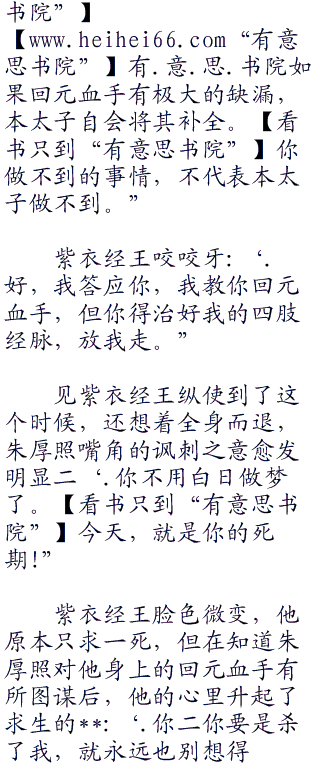 书院”】
【www.heihei66.com“有意
思书院”】有.意.思.书院如
果回元血手有极大的缺漏，
本太子自会将其补全。【看
书只到“有意思书院”】你
做不到的事情，不代表本太
子做不到。”
紫衣经王咬咬牙：‘.
好，我答应你，我教你回元
血手，但你得治好我的四肢
经脉，放我走。”
见紫衣经王纵使到了这
个时候，还想着全身而退，
朱厚照嘴角的讽刺之意愈发
明显二‘.你不用白日做梦
了。【看书只到“有意思书
院”】今天，就是你的死
期!”
紫衣经王脸色微变，他
原本只求一死，但在知道朱
厚照对他身上的回元血手有
所图谋后，他的心里升起了
求生的**:‘.你二你要是杀
了我，就永远也别想得